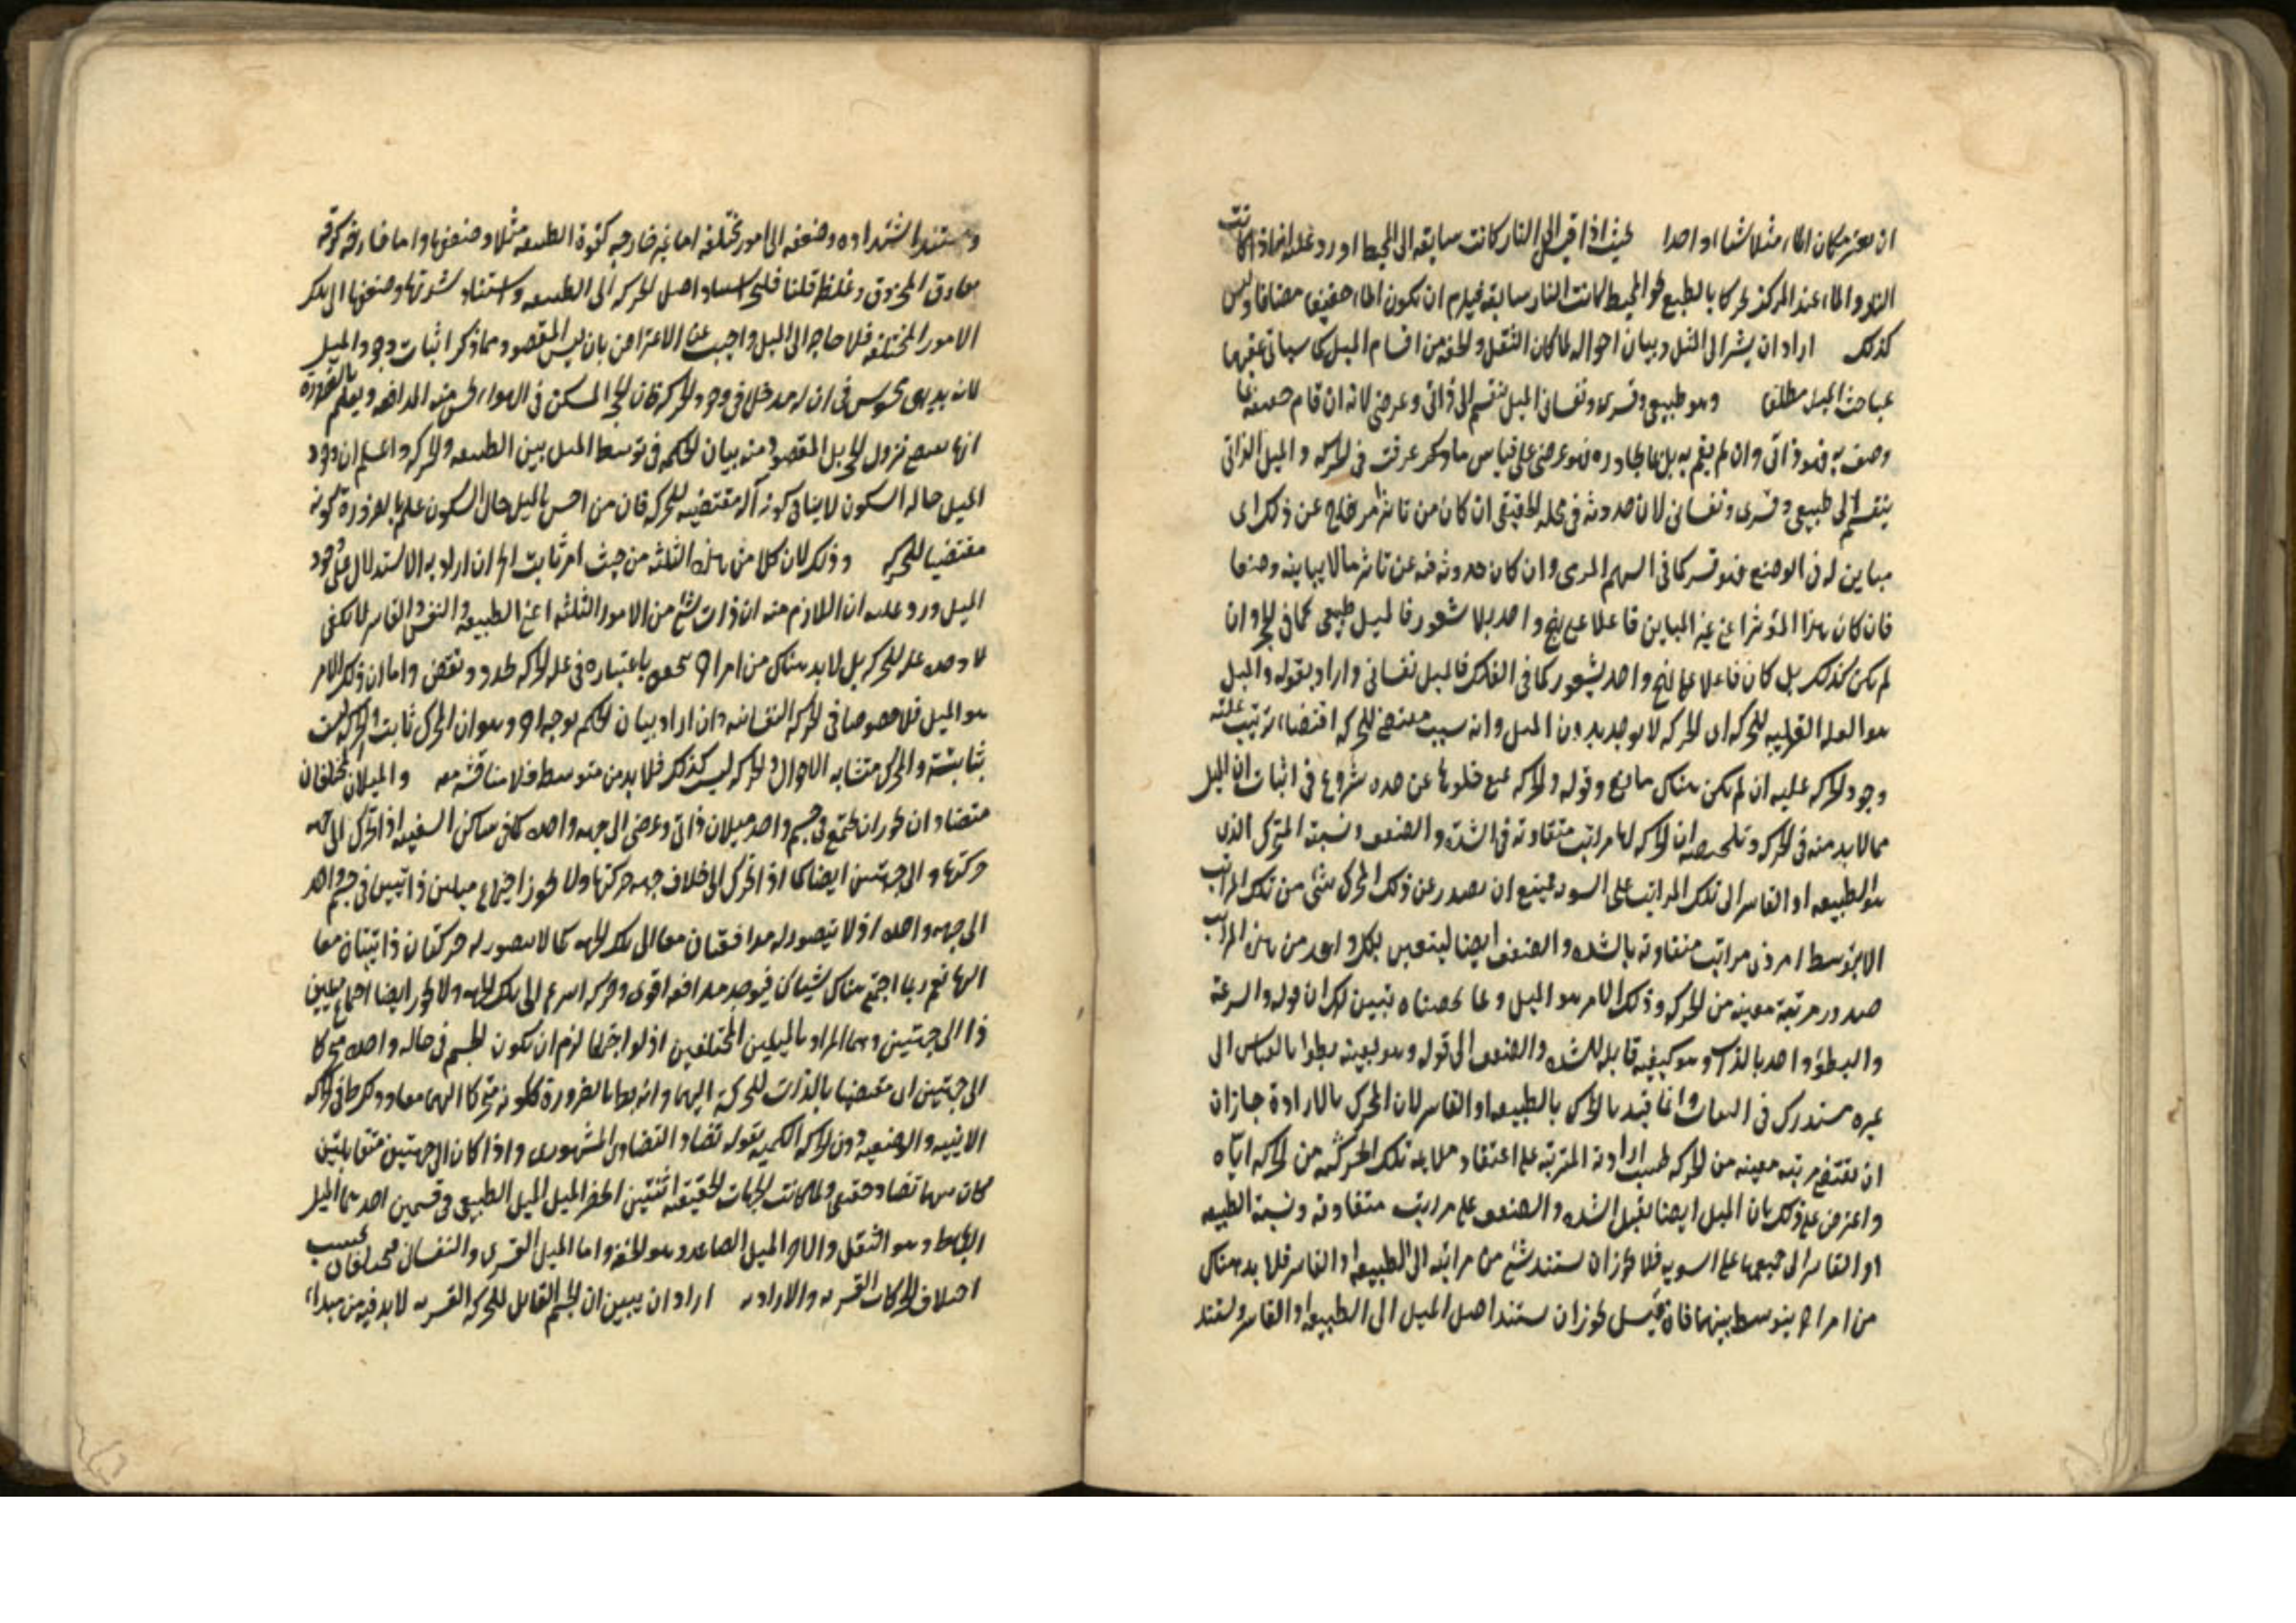 ان يعتبر مكان الماء مثلا شيئا واحدا بحيث اذا قيس الى النار كانت سابقة الى المحيط اورد عليه انه اذا كانت
النار والماء عند المركز تحركا بالطبع نحو المحيط كانت النار سابقة فيلزم ان يكون الماء خفيفا مضافا وليس
كذلك اراد ان يشير الى الثقل وبيان احواله لما كان الثقل والخفة من اقسام الميل كما سيأتي عقبها
بمباحث الميل مطلقا وهو طبيعي وقسري ونفساني الميل ينقسم الى ذاتي وعرضي لانه ان قام حقيقة بما
وصف به فهو ذاتي وان لم يقم به بل بما يجاوره فهو عرضي على قياس ما عرفت في الحركة والميل الذاتي
ينقسم الى طبيعي وقسري ونفساني لان حدوثه في محله الحقيقي ان كان من تاثير امر خارج عن ذلك اى
مباين له في الوضع فهو قسر كما في السهم المرمى وان كان حدوثه فيه عن تاثير ما لا يباينه وضعا
فان كان هذا المؤثر اعنى غير المباين فاعلا على نهج واحد بلا شعور فالميل طبيعي كما في الحجر وان
لم يكن كذلك بل كان فاعلا على نهج واحد بشعور كما في الفلك فالميل نفساني واراد بقوله والميل
هو العلة القريبة للحركة ان الحركة لا يوجد بدون الميل وانه سبب مقتضى للحركة اقتضاء ترتيب عليه
وجود الحركة عليه ان لم يكن هناك مانع وقوله والحركة يمتنع خلوها عن حده شروع في اثبات ان الميل
مما لابد منه في الحركة وتلخيصه ان الحركة لها مراتب متفاوتة في الشدة والضعف ونسبة المحرك الذى
هو الطبيعة او القاسر الى تلك المراتب على السوية فيمتنع ان يصدر عن ذلك المحرك شئ من تلك المراتب
الا بتوسط امر ذى مراتب متفاوتة بالشدة والضعف ايضا ليتعين بكل واحد من هذه المراتب
صدور مرتبة معينة من الحركة وذلك الامر هو الميل وبما لخصناه تبين لك ان قوله والسرعة
والبطؤ واحد بالذات وهو كيفية قابلة للشدة والضعف الى قوله وهو بعينه بطؤ بالقياس الى
غيره مستدرك في البيان وانما قيد المحرك بالطبيعة او القاسر لان المحرك بالارادة جاز ان
ان يقتضى مرتبة معينة من الحركة بحسب ارادته المترتبة على اعتقاد ملايمة تلك المرتبة من الحركة اياه
واعترض على ذلك بان الميل ايضا يقبل الشدة والضعف على مراتب متفاوتة ونسبة الطبيعة
او القاسر الى جميعها على السوية فلا يجوز ان يستند شئ من مراتبه الى الطبيعة او القاسر فلا بد هناك
من امر اخر يتوسط بينهما فان قيل يجوز ان يستند اصل الميل الى الطبيعة او القاسر ويستند
ويستند اشتداده وضعفه الى امور مختلفة اما غير خارجة كقوة الطبيعة مثلا وضعفها واما خارجة كرقة
معاوق المخروق وغلظه قلنا فليجز اسناد اصل الحركة الى الطبيعة واستناد شدتها وضعفها الى تلك
الامور المختلفة فلا حاجة الى الميل واجيب عن الاعتراض بان ليس المقصود مما ذكر اثبات وجود الميل
لانه بديهى محسوس في ان له مدخلا في وجود الحركة فان الحجر المسكن في الهواء يحس منه المدافعة ويعلم بالضرورة
انها تقتضى نزول الحجر بل المقصود منه بيان الحكمة في توسط الميل بين الطبيعة والحركة واعلم ان وجود
الميل حالة السكون لا ينافى كونه آلة مقتضية للحركة فان من احس بالميل حال السكون علم بالضرورة كونه
مقتضيا للحركة وذلك لان كلا من هذه الثلثة من حيث امر ثابت الخ ان اراد به الاستدلال على وجود
الميل ورد عليه ان اللازم منه ان ذات شئ من الامور الثلثة اعنى الطبيعة والنفس والقاسر لا يكفى
لا وحده علة للحركة بل لابد هناك من امر اخر يحصل باعتباره في علة الحركة تجدد ونقص واما ان ذلك الامر
هو الميل فلا خصوصا في الحركة النفسانية وان اراد بيان الحكم بوجه اخر وهو ان المحرك ثابت والحركة ليست
بثابتة والمحرك متشابه الاحوال والحركة ليست كذلك فلا بد من متوسط فلا مناقشة معه والميلان المختلفان
متضادان يجوز ان يجتمع في جسم واحد ميلان ذاتى وعرضى الى جهة واحدة كما في ساكن السفينة اذا تحرك الى جهة
حركتها والى جهتين ايضا كما اذا تحرك الى خلاف جهة حركتها ولا يجوز اجتماع ميلين ذاتيين في جسم واحد
الى جهة واحدة اذ لا يتصور له مدافعتان معا الى تلك الجهة كما لا يتصور له حركتان ذاتيتان معا
اليها نعم ربما اجتمع هناك شيئان فيوجد مدافعة اقوى وحركة اسرع الى تلك الجهة ولا يجوز ايضا اجتماع ميلين
ذا الى جهتين وهما المراد بالميلين المختلفين اذ لو اجتمعا لزم ان يكون الجسم في حالة واحدة متحركا
الى جهتين ان مقتضيا بالذات للحركة اليهما وانه بط بالضرورة لكونه متحركا اليهما معا وذكرهما في الحركة
الاينية والوضعية دون الحركة الكمية بقوله تضاد التضاد المشهورى واذا كان الى جهتين متقابلتين
كان بينهما تضاد حقيقى ولما كانت الجهات الحقيقية اثنتين انحصر الميل الطبيعى في قسمين احدهما الميل
الهابط وهو الثقل والاخر الميل الصاعد وهو الخفة واما الميل القسرى والنفسانى فمختلفان بحسب
اختلاف الحركات القسرية والارادية اراد ان يبين ان الجسم القابل للحركة القسرية لابد فيه من مبداء